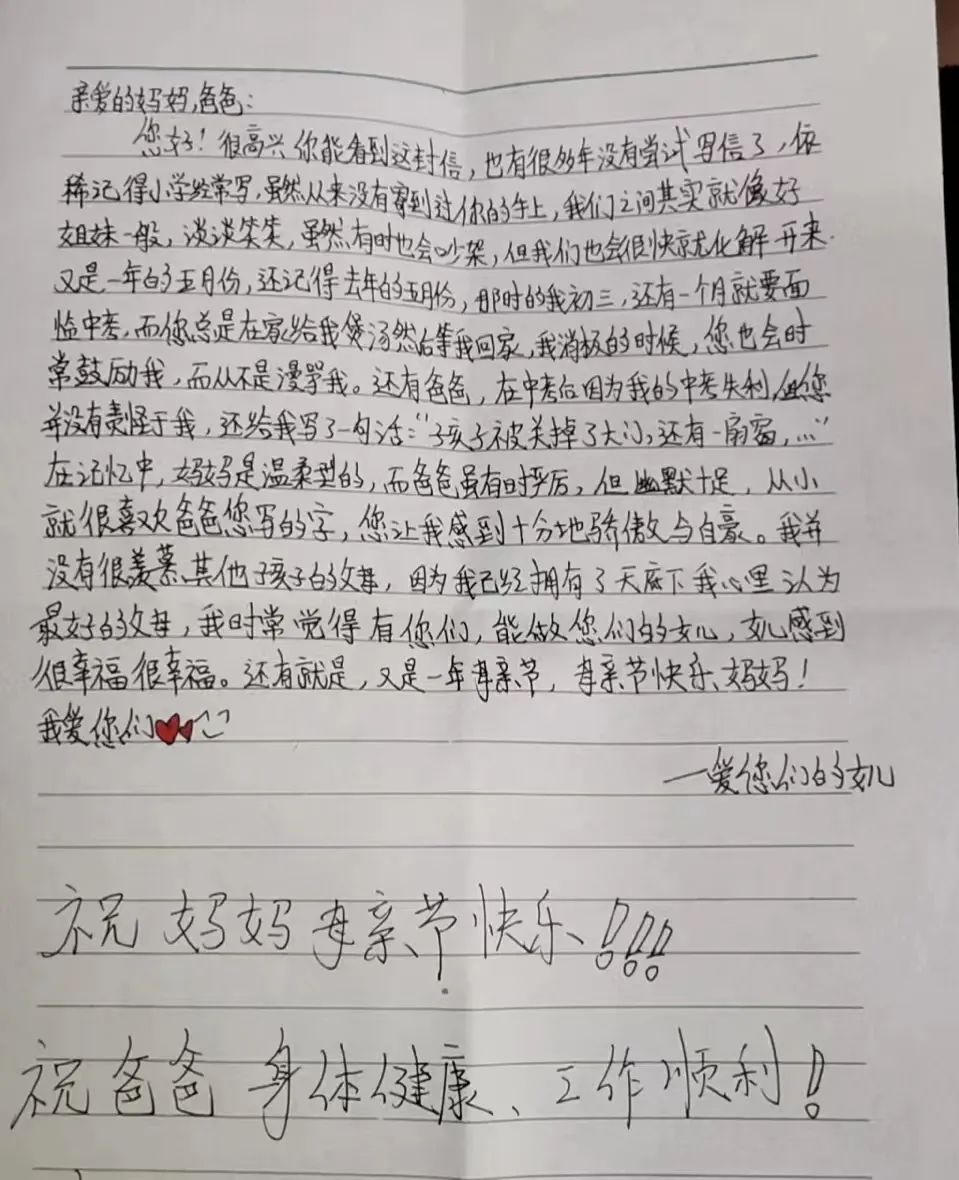 亲爱的妈妈,爸爸:
您好!很高兴你能看到这封信,也有很多年没有尝试写信了,依
稀记得小学经常写,虽然从来没有寄到过你的手上,我们之间其实就像好
姐妹一般,谈谈笑笑,虽然有时也会吵架,但我们也会很快就化解开来.
又是一年的五月份,还记得去年的五月份,那时的我初三,还有一个月就要面
临中考,而你总是在家给我煲汤然后等我回家,我消极的时候,您也会时
常鼓励我,而从不是漫骂我。还有爸爸,在中考后因为我的中考失利,但您
并没有责怪于我,还给我写了一句话:“孩子被关掉了大门,还有一扇窗,...”
在记忆中,妈妈是温柔型的,而爸爸虽有时严厉,但幽默十足,从小
就很喜欢爸爸您写的字,您让我感到十分地骄傲与自豪。我并
没有很羡慕其他孩子的父母,因为我已经拥有了天底下我心里认为
最好的父母,我时常觉得有您们,能做您们的女儿,女儿感到
很幸福很幸福。还有就是,又是一年母亲节,母亲节快乐妈妈!
我爱您们
—爱您们的女儿
祝妈妈母亲节快乐!!!
祝爸爸身体健康、工作顺利!